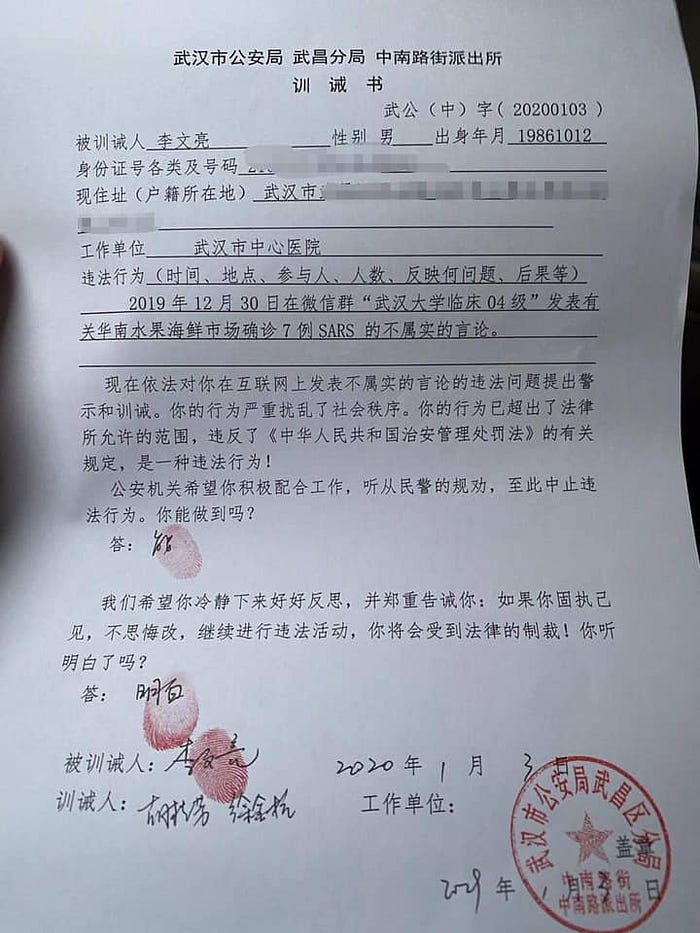 武汉市公安局 武昌分局 中南路街派出所
训 诫 书
武公（中）字（20200103）
被训诫人 李文亮 性别 男 出身年月 19861012
身份证号各类及号码
现住址（户籍所在地） 武汉市
工作单位 武汉市中心医院
违法行为（时间、地点、参与人、人数、反映何问题、后果等）
2019 年 12 月 30 日在微信群“武汉大学临床 04 级”发表有
关华南水果海鲜市场确诊 7 例 SARS 的不属实的言论。
现在依法对你在互联网上发表不属实的言论的违法问题提出警
示和训诫。你的行为严重扰乱了社会秩序。你的行为已超出了法律
所允许的范围，违反了《中华人民共和国治安管理处罚法》的有关
规定，是一种违法行为！
公安机关希望你积极配合工作，听从民警的规劝，至此中止违
法行为。你能做到吗？
答： 能
我们希望你冷静下来好好反思，并郑重告诫你：如果你固执己
见，不思悔改，继续进行违法活动，你将会受到法律的制裁！你听
明白了吗？
答： 明白
被训诫人： 李文亮 2020 年 1 月 3 日
训诫人： 工作单位：
武汉市公安局武昌区分局
盖章
中南路街
中南路派出所
年 1 月 3 日